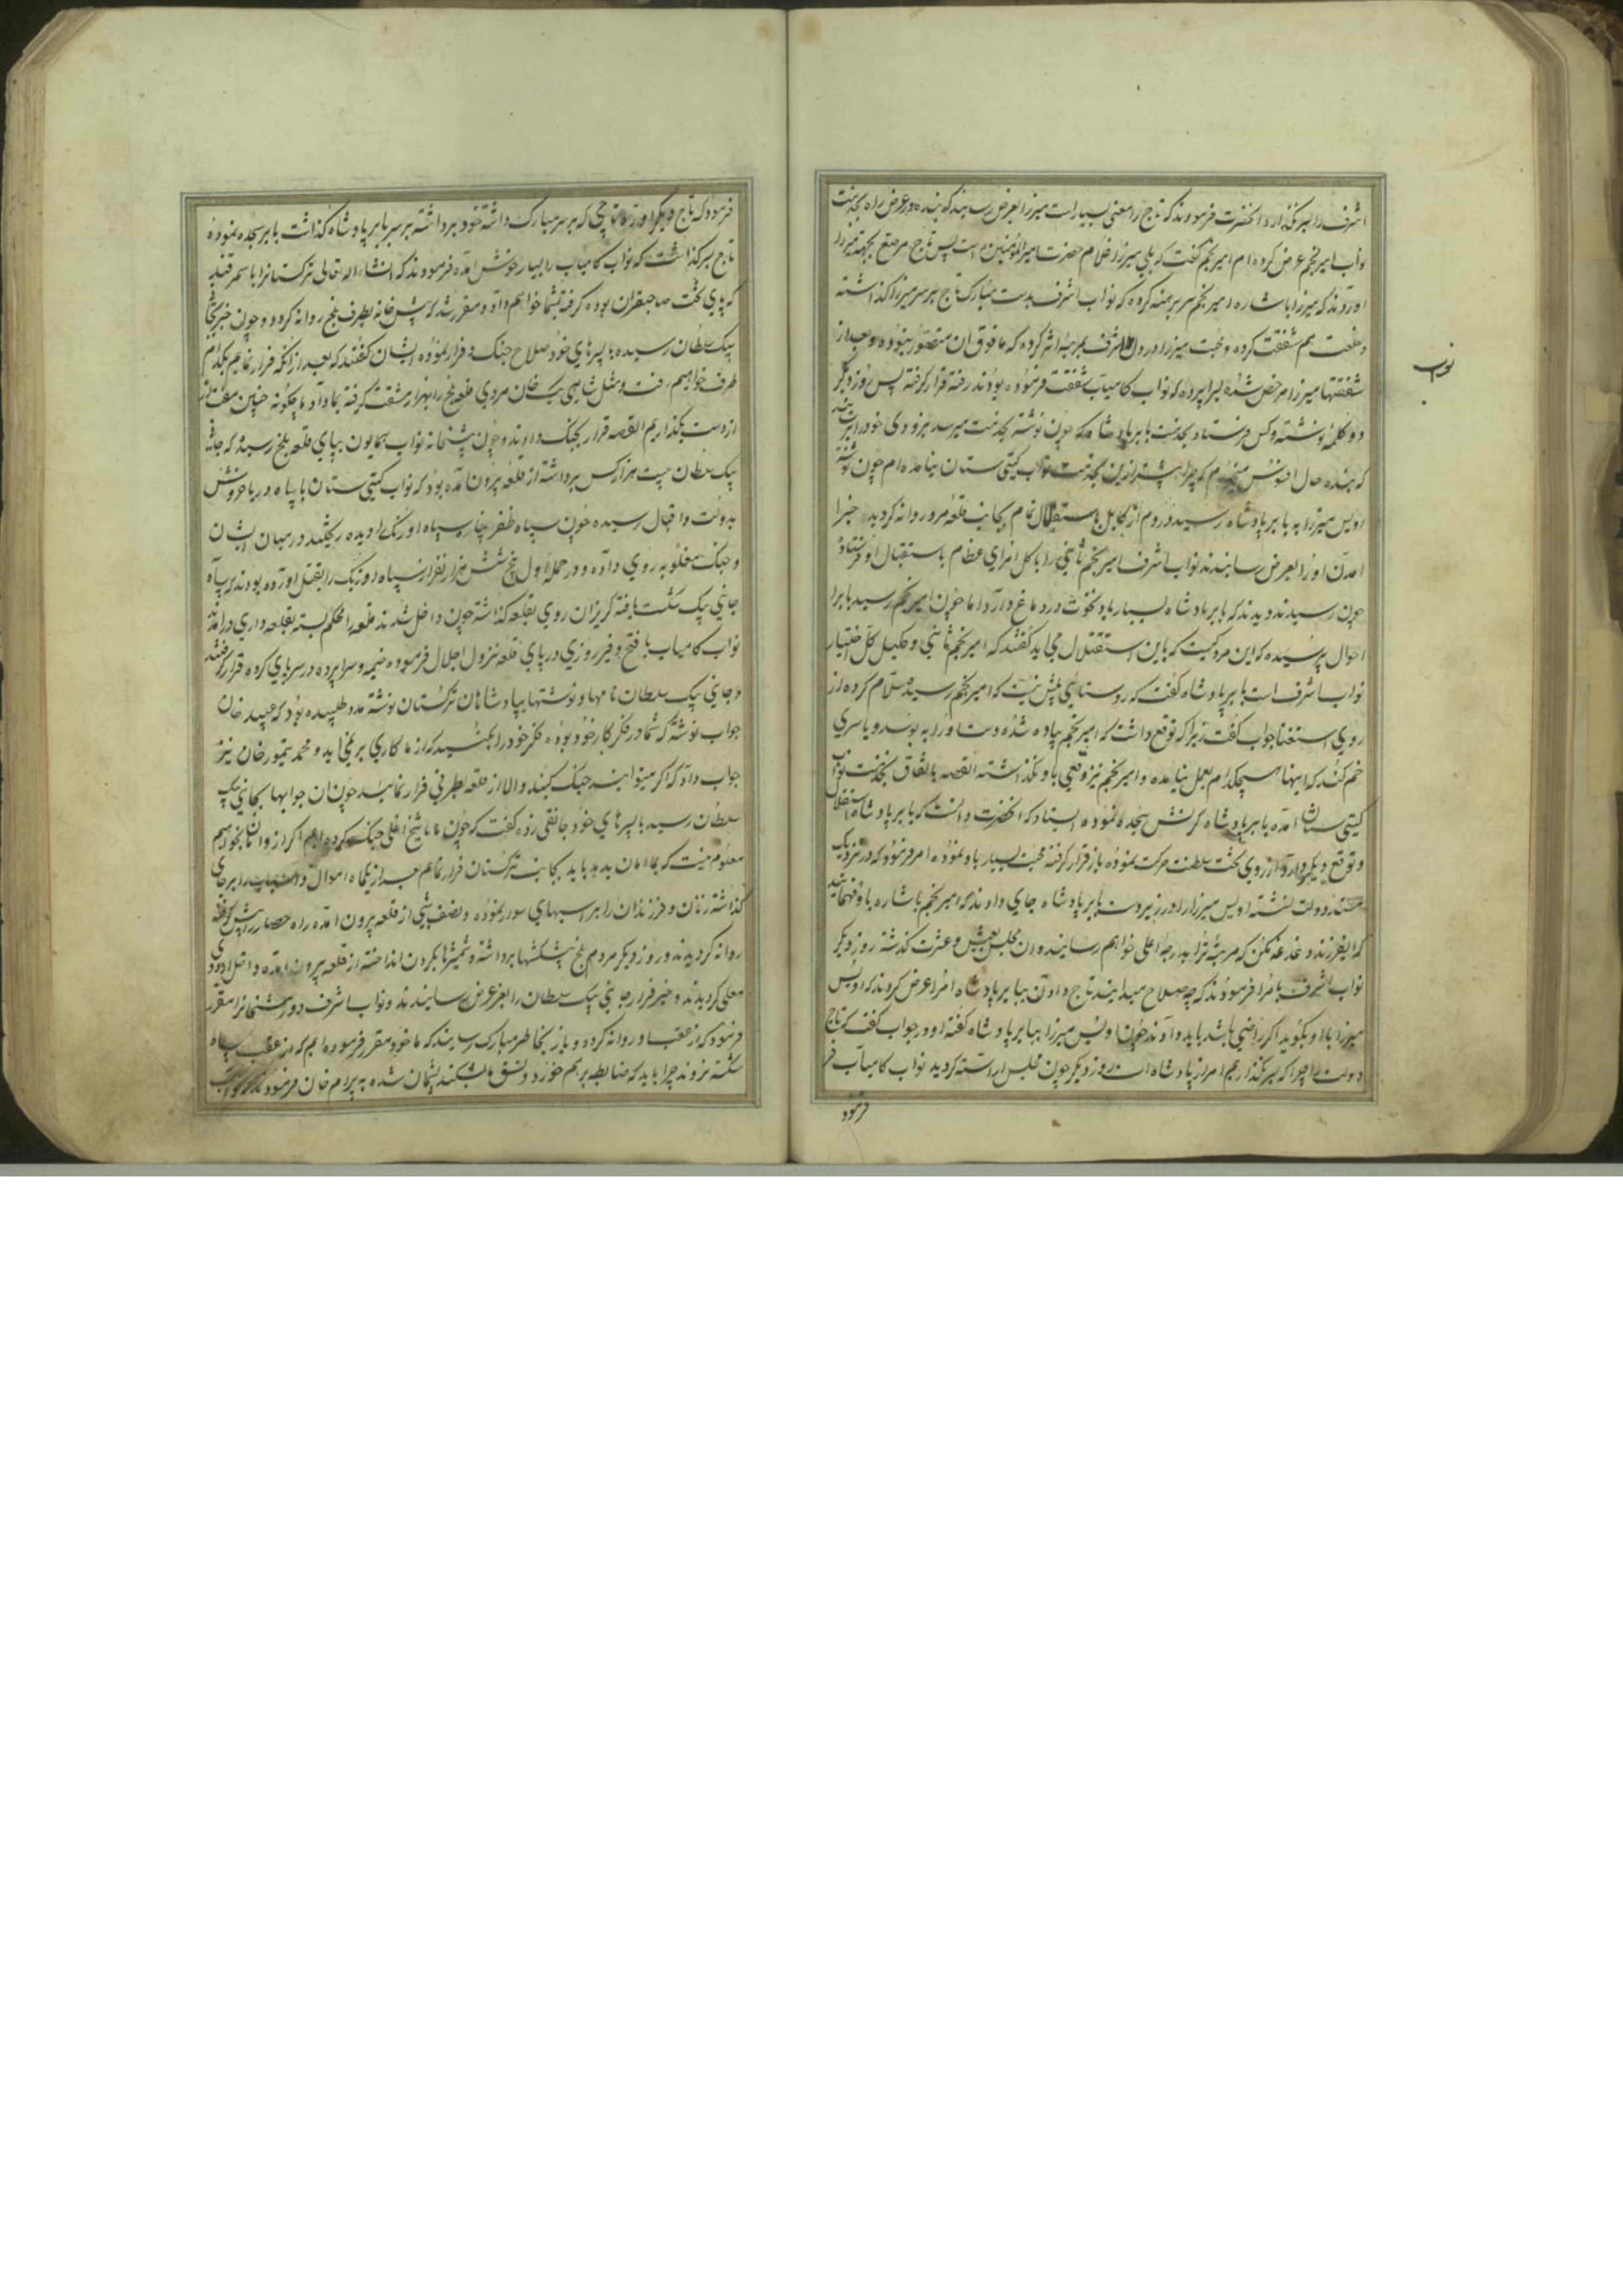 اشرف را بسر گذارد آنحضرت فرمودند که تاج را معنی بسیار است میرزا بعرض رسانید که بنده در عرض راه بخدمت
نواب امیر نجم عرض کرده ام امیر نجم گفت که بلی میرزا غلام حضرت امیرالمؤمنین است پس تاج مرصع بجهة میرزا
اوردند که میرزا باشاره امیر نجم سر برهنه کرده که نواب اشرف بدست مبارک تاج بر سر میرزا گذاشته
و خلعت هم شفقت کرده و محبت میرزا در دل اشرف بمرتبه اثر کرده که مافوق ان متصور نبوده و بعد از
شفقتها میرزا مرخص شده بسراپرده که نواب کامیاب شفقت فرموده بودند رفته قرار گرفته پس روز دیگر
دو کلمه نوشته و کس فرستاد بخدمت بابر پادشاه که چون نوشته بخدمت میرسد بزودی خود را برسانید
که بنده حال افسوس میخورم که چرا پیشتر ازین بخدمت نواب گیتی ستان نیامده ام چون نوشته
اویس میرزا به بابر پادشاه رسید در دم از کابل باستقلال تمام بجانب قلعه مرو روانه گردید خبر
امدن او را بعرض رسانیدند نواب اشرف امیر نجم ثانی را با کل امرای عظام باستقبال او فرستاد
چون رسیدند دیدند که بابر پادشاه بسیار باد نخوت در دماغ دارد اما چون امیر نجم رسید بابر
احوال پرسیده که این مرد کیست که باین استقلال می اید گفتند که امیر نجم ثانی وکیل کل اختیار
نواب اشرف است بابر پادشاه گفت که روستائی بیش نیست که امیر نجم رسیده سلام کرده از
روی استغنا جواب گفت زیرا که توقع داشت که امیر نجم پیاده شده دست او را به بوسد و یا سری
خم کند که اینها هیچکدام بعمل نیامده و امیر نجم نیز وقعی باو نگذاشته القصه باتفاق بخدمت نواب
گیتی ستان آمده بابر پادشاه کرنش سجده نموده ایستاد که آنحضرت دانست که بابر پادشاه استقلال
و توقع دیگر دارد از روی تخت سلطنت حرکت نموده باز قرار گرفته محبت بسیار باو نموده امر فرمود که در نزدیک
مسند دولت نشسته اویس میرزا را در زیر دست بابر پادشاه جای دادند که امیر نجم باشاره باو فهمانید
که ایفرزند دغدغه مکن که مرتبه ترا بدرجه اعلی خواهم رسانید و ان مجلس بعیش و عشرت گذشته روز دیگر
نواب اشرف بامرا فرمودند که چه صلاح میدانید تاج دادن ببابر پادشاه امرا عرض کردند که اویس
میرزا باو بگوید اگر راضی باشد باید داد چون اویس میرزا ببابر پادشاه گفته او در جواب گفت که تاج
دولت را چرا که بسر نگذاریم امر از پادشاه است روز دیگر چون مجلس اراسته گردید نواب کامیاب
فرمود
نواب
فرمود که تاج دیگر اوردند تاجی که بر سر مبارک داشته خود برداشته بر سر بابر پادشاه گذاشت بابر سجده نموده
تاج بسر گذاشت که نواب کامیاب را بسیار خوش امده فرمودند که انشاء اله تعالی ترکستانرا با سمرقند
که پای تخت صاحبقران بوده گرفته بشما خواهم داد و مقرر شد که پیش خانه بطرف بلخ روانه گردد و چون خبر بجانی
بیک سلطان رسیده با پسرهای خود صلاح جنک و فرار نموده ایشان گفتند که بعد از انکه فرار نمائیم بکدام
طرف خواهیم رفت و مثل شاهی بیک خان مردی قلعه بلخ را بهزار مشقت گرفته بما داد ما چگونه چنین مفت
از دست بگذاریم القصه قرار بجنک دادند و چون پیشخانه نواب همایون بپای قلعه بلخ رسید که جانی
بیک سلطان بیست هزار کس برداشته از قلعه بیرون آمده بود که نواب گیتی ستان با سپاه دریا خروش
بدولت و اقبال رسیده چون سپاه ظفر پناه سپاه اوزبک را دیده ریختند در میان ایشان
و جنک مغلوبه روی داده و در حمله اول بلخ شش هزار نفر از سپاه اوزبک را بقتل اورده بودند که سپاه
جانی بیک شکست یافته گریزان روی بقلعه گذاشته چون داخل شدند قلعه را محکم بسته بقلعه داری درامدند
نواب کامیاب با فتح و فیروزی در پای قلعه نزول اجلال فرموده خیمه و سراپرده در سرپای کرده قرار گرفتند
و جانی بیک سلطان نامها و نوشتها بپادشاهان ترکستان نوشته مدد طلبیده بود که عبید خان
جواب نوشته که شما در فکر کار خود بوده فکر خود را بکنید که از ما کاری بر نمی اید و محمد تیمور خان نیز
جواب داد که اگر میتوانید جنک بکنید والا از قلعه بطرفی فرار نمائید چون ان جوابها بجانی بیک
سلطان رسید با پسرهای خود جانقی زده گفت که چون ما با شیخ اغلی جنک کرده ایم اگر از او امان بخواهیم
معلوم نیست که بما امان بدهد باید بجانب ترکستان فرار نمائیم اموال و اسباب را بر جای
گذاشته زنان و فرزندان را بر اسبهای سوار نموده و نصف شبی از قلعه بیرون امده راه حصار را پیش گرفته
روانه گردیدند و روز دیگر مردم بلخ پیشکشها برداشته و شمشیرها بگردن انداخته از قلعه بیرون امده داخل اردوی
معلی گردیدند و خبر فرار جانی بیک سلطان را بعز عرض رسانیدند و نواب اشرف دورمشخانرا مقرر
فرمود که از عقب او روانه گردد و باز بخاطر مبارک رسانید که ما خود مقرر فرموده ایم که از عقب سپاه
شکسته نروند چرا باید که ضابطه بر هم خورد و نسق ما بشکند پشیمان شده به بیرام خان فرمود